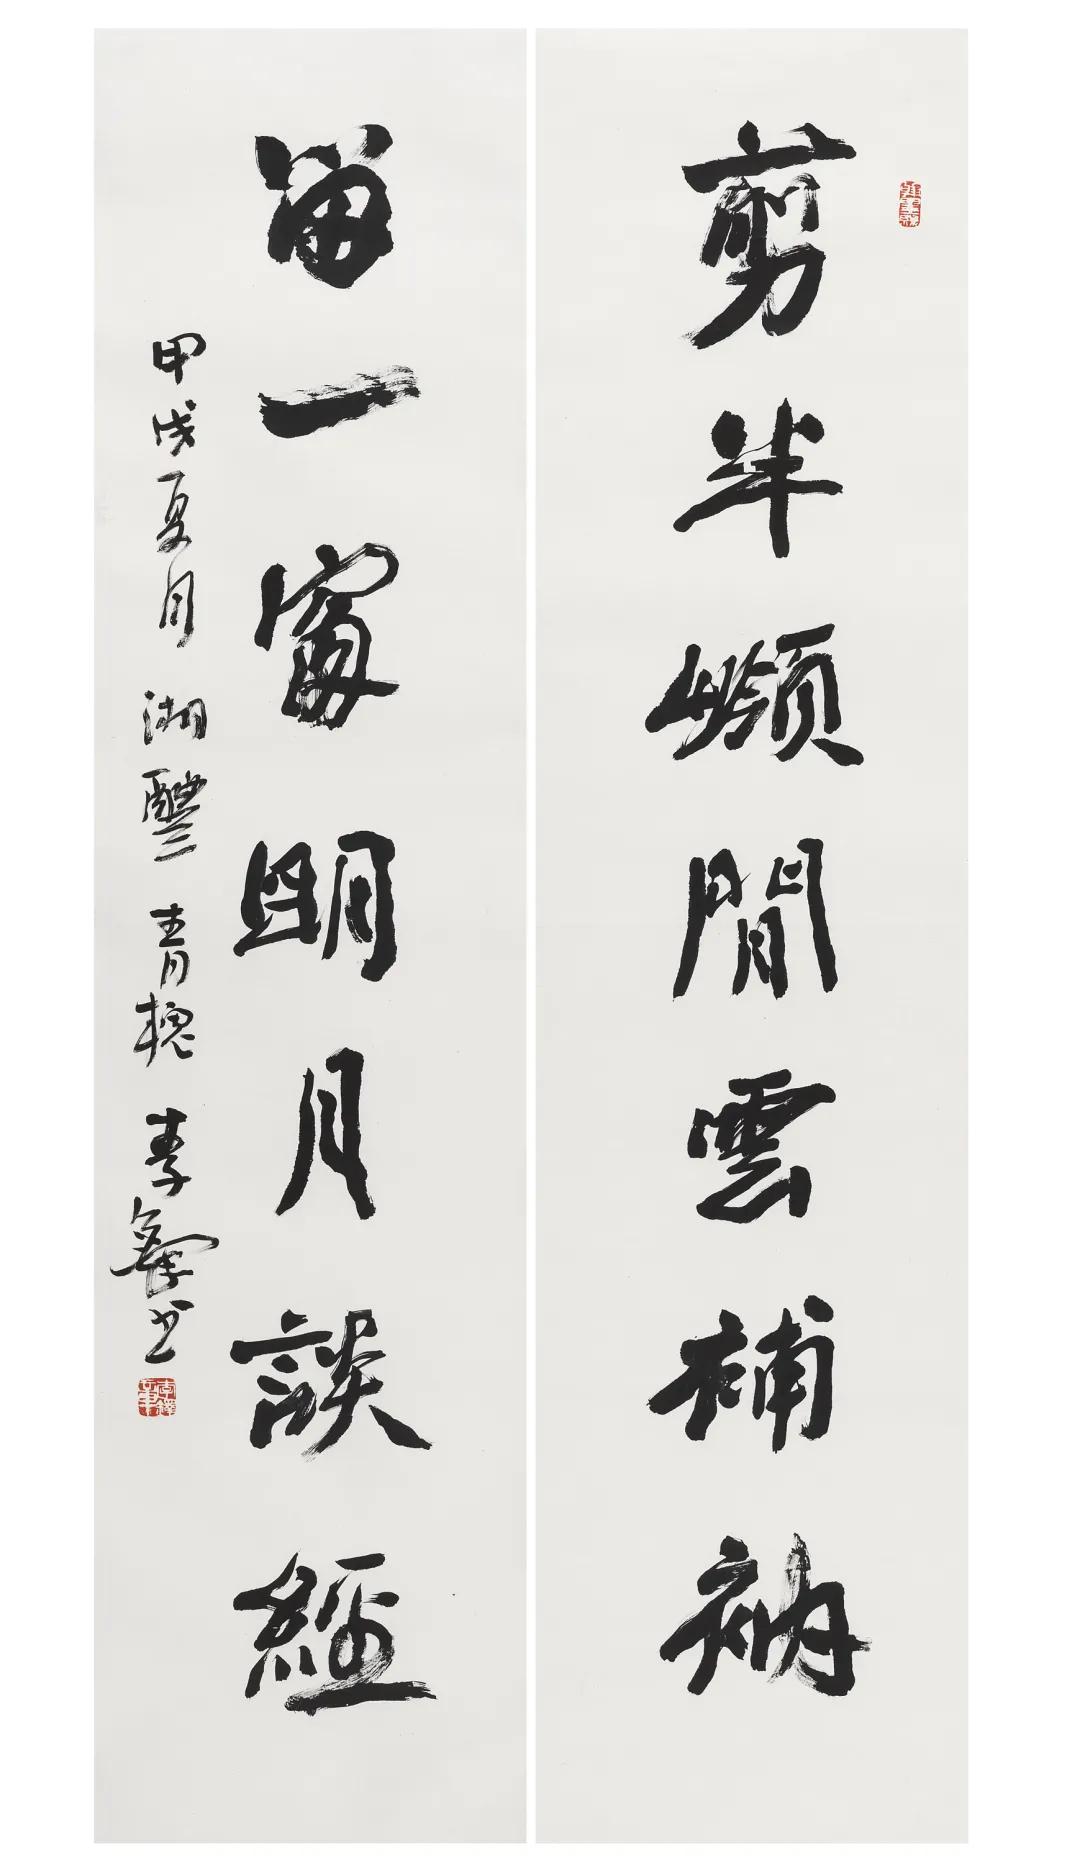 剪半嶺閒雲補衲
留一窗明月談經
甲戌夏月湘醴青槐李鐸书